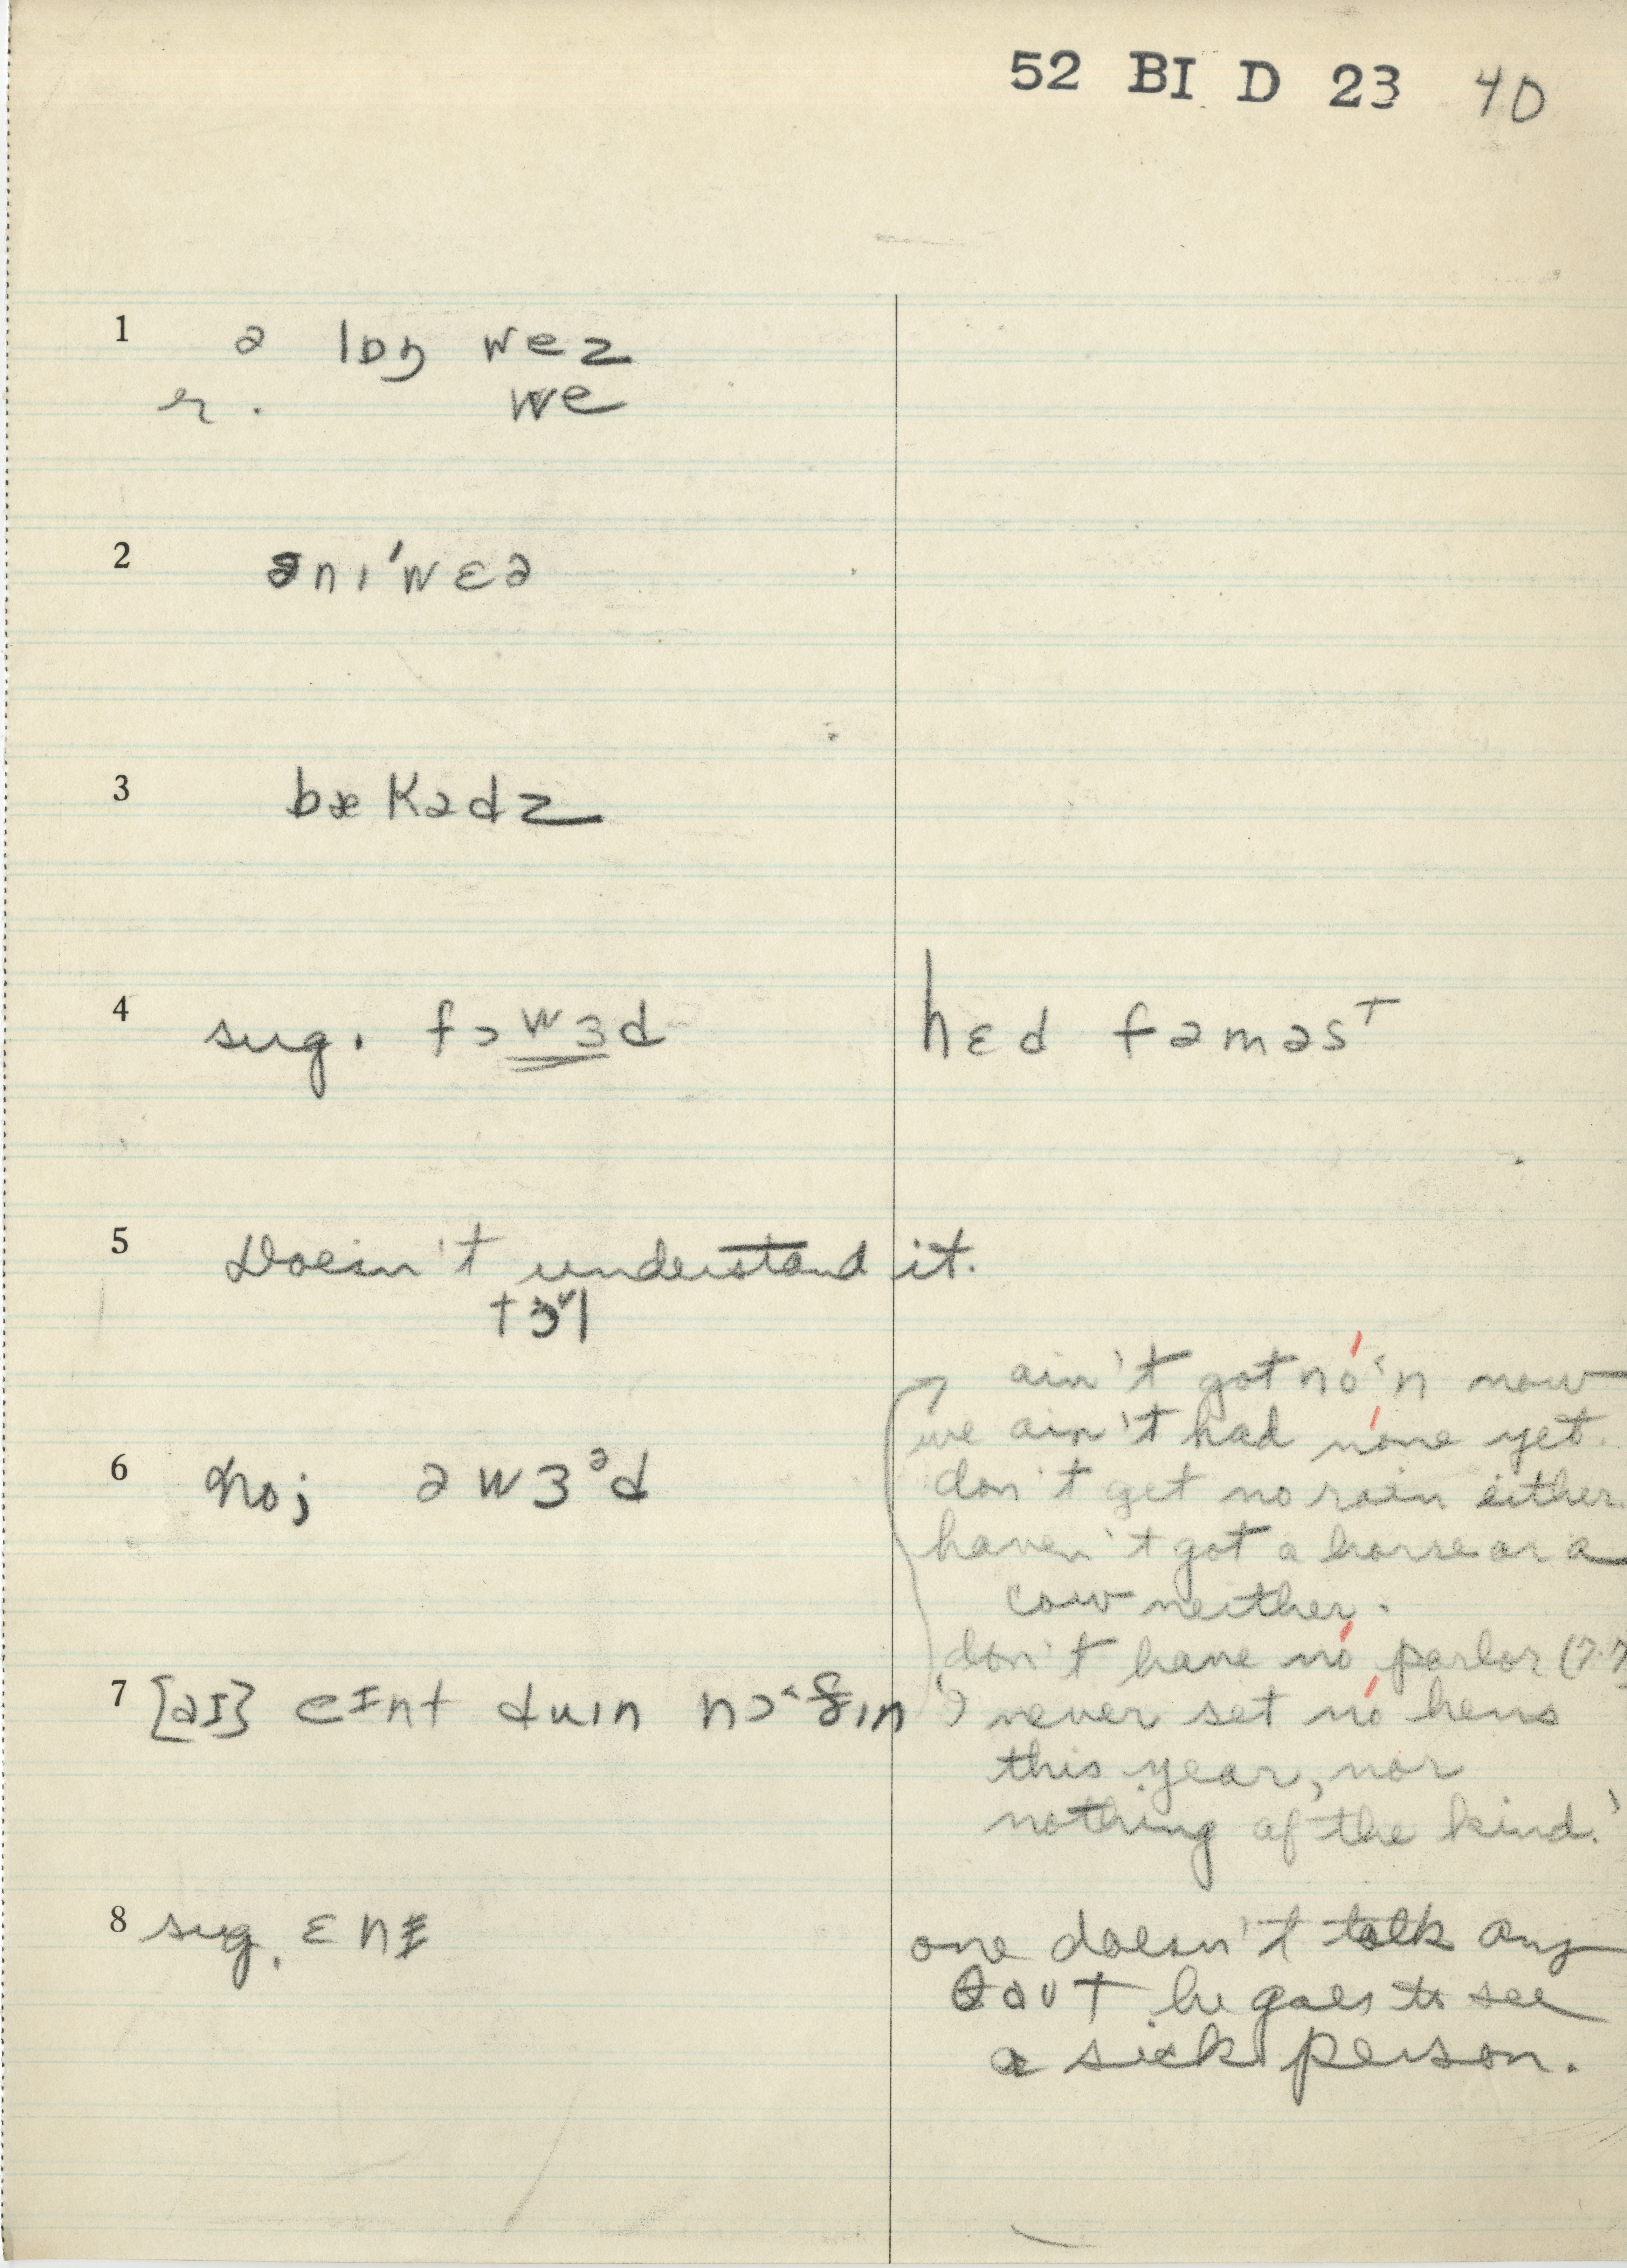 52 BI D 23 40
1 ə lɒŋ wez
r. we
2 ənɪ'wɛə
3 bækədz
4 sug. fɔwɜd
hɛd faməst
5 Doesn't understand it.
6 No; əwɜᵊd
ain't got nó'n now
we ain't had none yet.
don't get no rain either.
haven't got a horse or a
cow neither.
don't have no parlor
7 [aɪ] eɪnt duɪn
I never set no hens
this year, nor
nothing of the kind.'
8 sug. ɛnɪ
one doesn't talk any
ðaʊt he goes to see
a sick person.